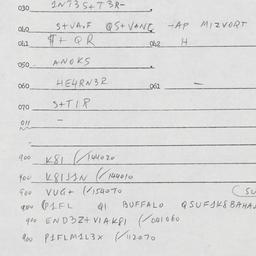 030 1NT3S+T3R-
040 S+VA.F QS+VANT -AP MIZVORT
041 #+ QR 042 H
050 ANOKS
060 HE4RN3R 061 -
070 S+TIR
011 -
900 K8I (/144020
900 K8IJ1N (/144010
900 VUG+ (/154070 (SU
900 P1FL QI BUFFALO QSUF1K8BAHA
900 END3Z+VIAK8I (/041060
900 P1FLM1L3X (/112070